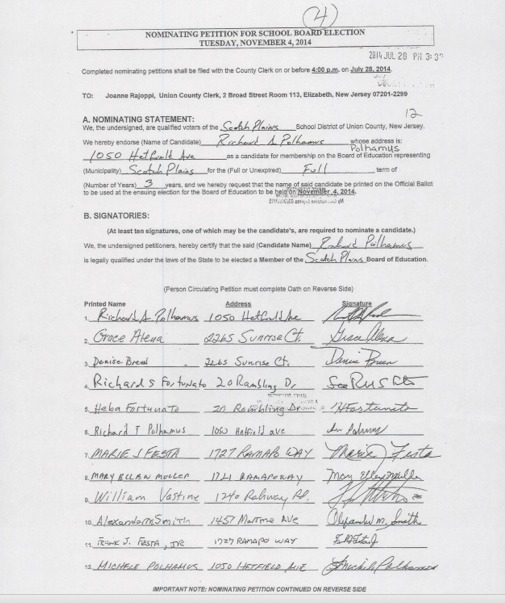 (4)
NOMINATING PETITION FOR SCHOOL BOARD ELECTION
TUESDAY, NOVEMBER 4, 2014
2014 JUL 28 PM 3:37
Completed nominating petitions shall be filed with the County Clerk on or before 4:00 p.m. on July 28, 2014.
TO: Joanne Rajoppi, Union County Clerk, 2 Broad Street Room 113, Elizabeth, New Jersey 07201-2299
12
A. NOMINATING STATEMENT:
We, the undersigned, are qualified voters of the Scotch Plains School District of Union County, New Jersey.
We hereby endorse (Name of Candidate) Richard A Polhamus whose address is:
Polhamus
1050 Hetfield Ave as a candidate for membership on the Board of Education representing
(Municipality) Scotch Plains for the (Full or Unexpired) Full term of
(Number of Years) 3 years, and we hereby request that the name of said candidate be printed on the Official Ballot
to be used at the ensuing election for the Board of Education to be held on November 4, 2014.
B. SIGNATURES:
(At least ten signatures, one of which may be the candidate's, are required to nominate a candidate.)
We, the undersigned petitioners, hereby certify that the said (Candidate Name) Richard Polhamus
is legally qualified under the laws of the State to be elected a Member of the Scotch Plains Board of Education.
(Person Circulating Petition must complete Oath on Reverse Side)
Printed Name Address Signature
1. Richard A. Polhamus 1050 Hetfield Ave
2. Grace Alena 2265 Sunrise Ct. Grace Alena
3. Denise Breen 2265 Sunrise Ct. Denise Breen
4. Richard S Fortunato 20 Rambling Dr
5. Heba Fortunato 20 Rambling Dr HFortunato
6. Richard T Polhamus 1050 Hetfield ave
7. MARIE J FESTA 1727 RAMAPO WAY Marie J Festa
8. MARY ELLEN MULLER 1721 RAMAPO WAY Mary Ellen Muller
9. William Vastine 1240 Rahway Rd.
10. Alexander M Smith 1457 Martine AVE Alexander M. Smith
11. FRANK J. FESTA, JR 1727 RAMAPO WAY
12. MICHELE POLHAMUS 1050 HETFIELD AVE Michele Polhamus
IMPORTANT NOTE: NOMINATING PETITION CONTINUED ON REVERSE SIDE